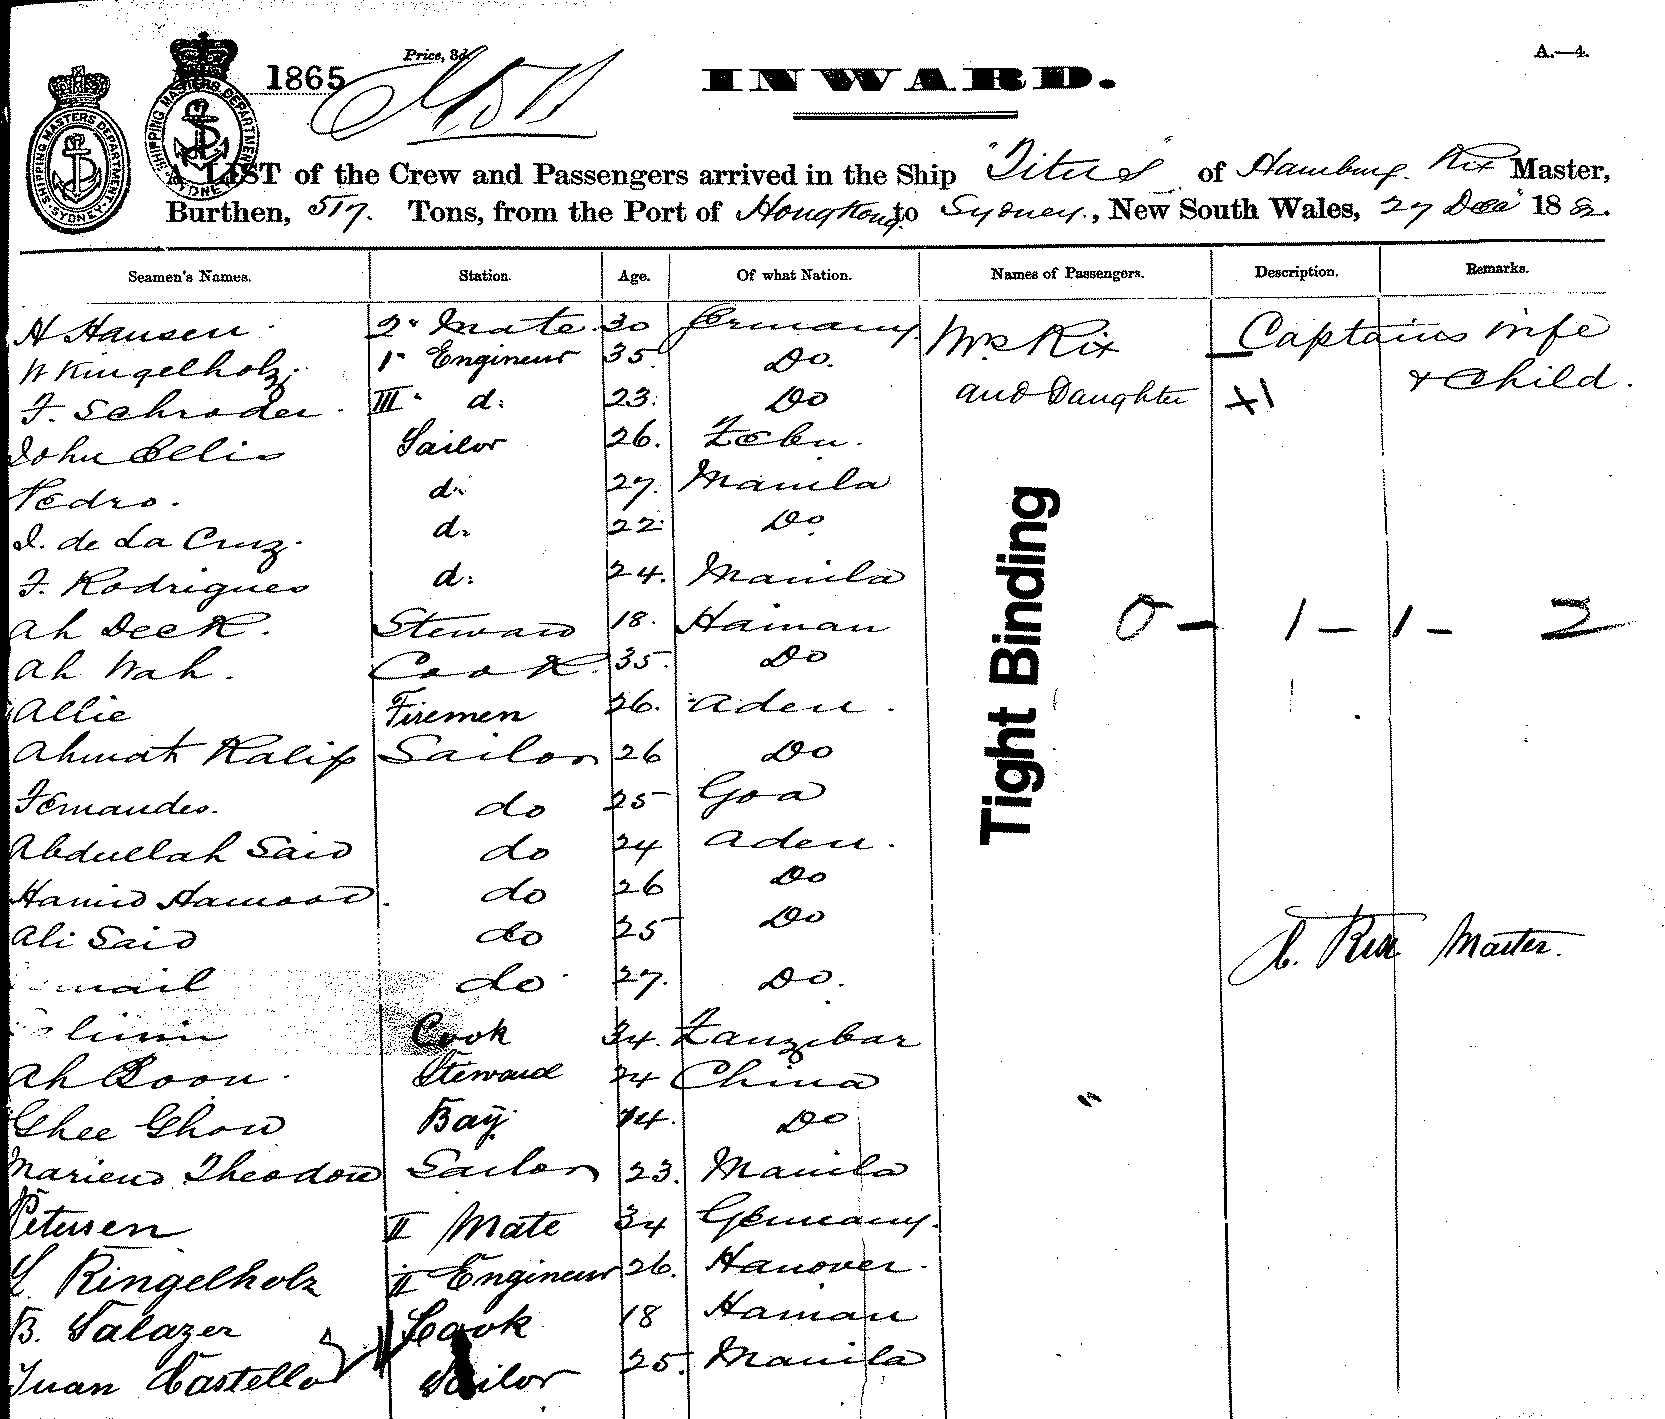 Price, 3d.
A.—4.
1865
INWARD.
SHIPPING MASTERS DEPARTMENT SYDNEY
SHIPPING MASTERS DEPARTMENT SYDNEY
A LIST of the Crew and Passengers arrived in the Ship "Titus" of Hamburg. Rix Master,
Burthen, 517. Tons, from the Port of Hong Kong to Sydney, New South Wales, 27 Decr 1882.
Seamen's Names. Station. Age. Of what Nation. Names of Passengers. Description. Remarks.
H Hansen 2d Mate 30 Germany. Mrs Rix Captains wife
W Ringelholz 1st Engineur 35 Do. and Daughter & Child.
F. Schroder III d: 23 Do
John Celis Sailor 26. Zebu.
Pedro. d: 27. Manila
I. de La Cruz d: 22 Do
F. Rodrigues d: 24. Manila
Ah Deck. Steward 18. Hainan 0 - 1 - 1 - 2
Ah Wah. Cook 35 Do
Allie Firemen 26. Aden.
Ahmat Kalif Sailor 26 Do
Fernandes. do 25 Goa
Abdullah Said do 24 Aden.
Hamid Hamood do 26 Do
Ali Said do 25 Do
C. Rix Master.
mail do 27. Do.
limin Cook 34. Zanzibar
Ah Boon Steward 24 China
Ghee Ghow Boy 14. Do
Mariend Theodore Sailor 23. Manila
Petersen II Mate 34 Germany.
L. Ringelholz II Engineur 26. Hanover.
B. Salazer Cook 18 Hainan
Juan Castello Sailor 25. Manila
Tight Binding